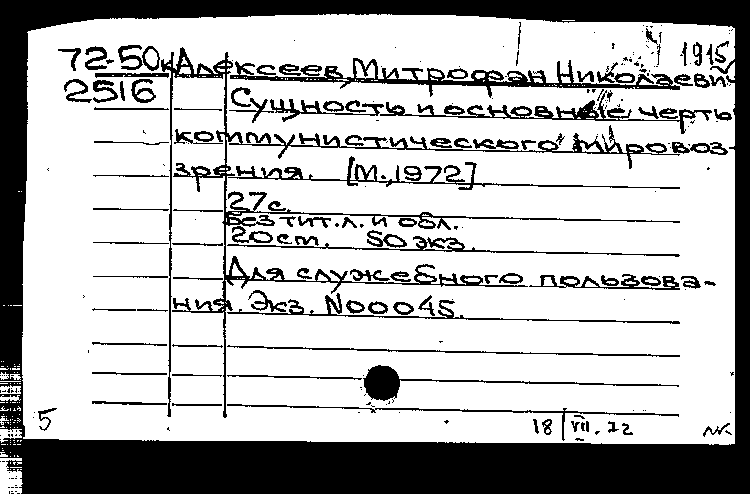 1915
72-50к Алексеев, Митрофан Николаевич
2516 Сущность и основные черты
коммунистического мировоз-
зрения. [М., 1972].
27 с.
Без тит. л. и обл.
20 см. 50 экз.
Для служебного пользова-
ния. Экз. N00045.
5 18/VII.72